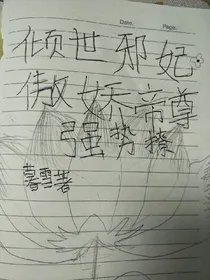 Date: Page:
倾世邪妃
傲妖帝尊
强势撩
暮雪著